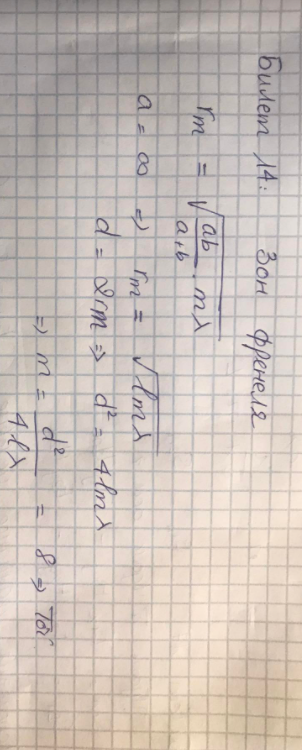 Билет 14: Зон френеля
rm = √(ab/(a+b) · mλ)
a = ∞ => rm = √(lmλ)
d = 2rm => d² = 4lmλ
=> m = d²/(4lλ) = 8 =>